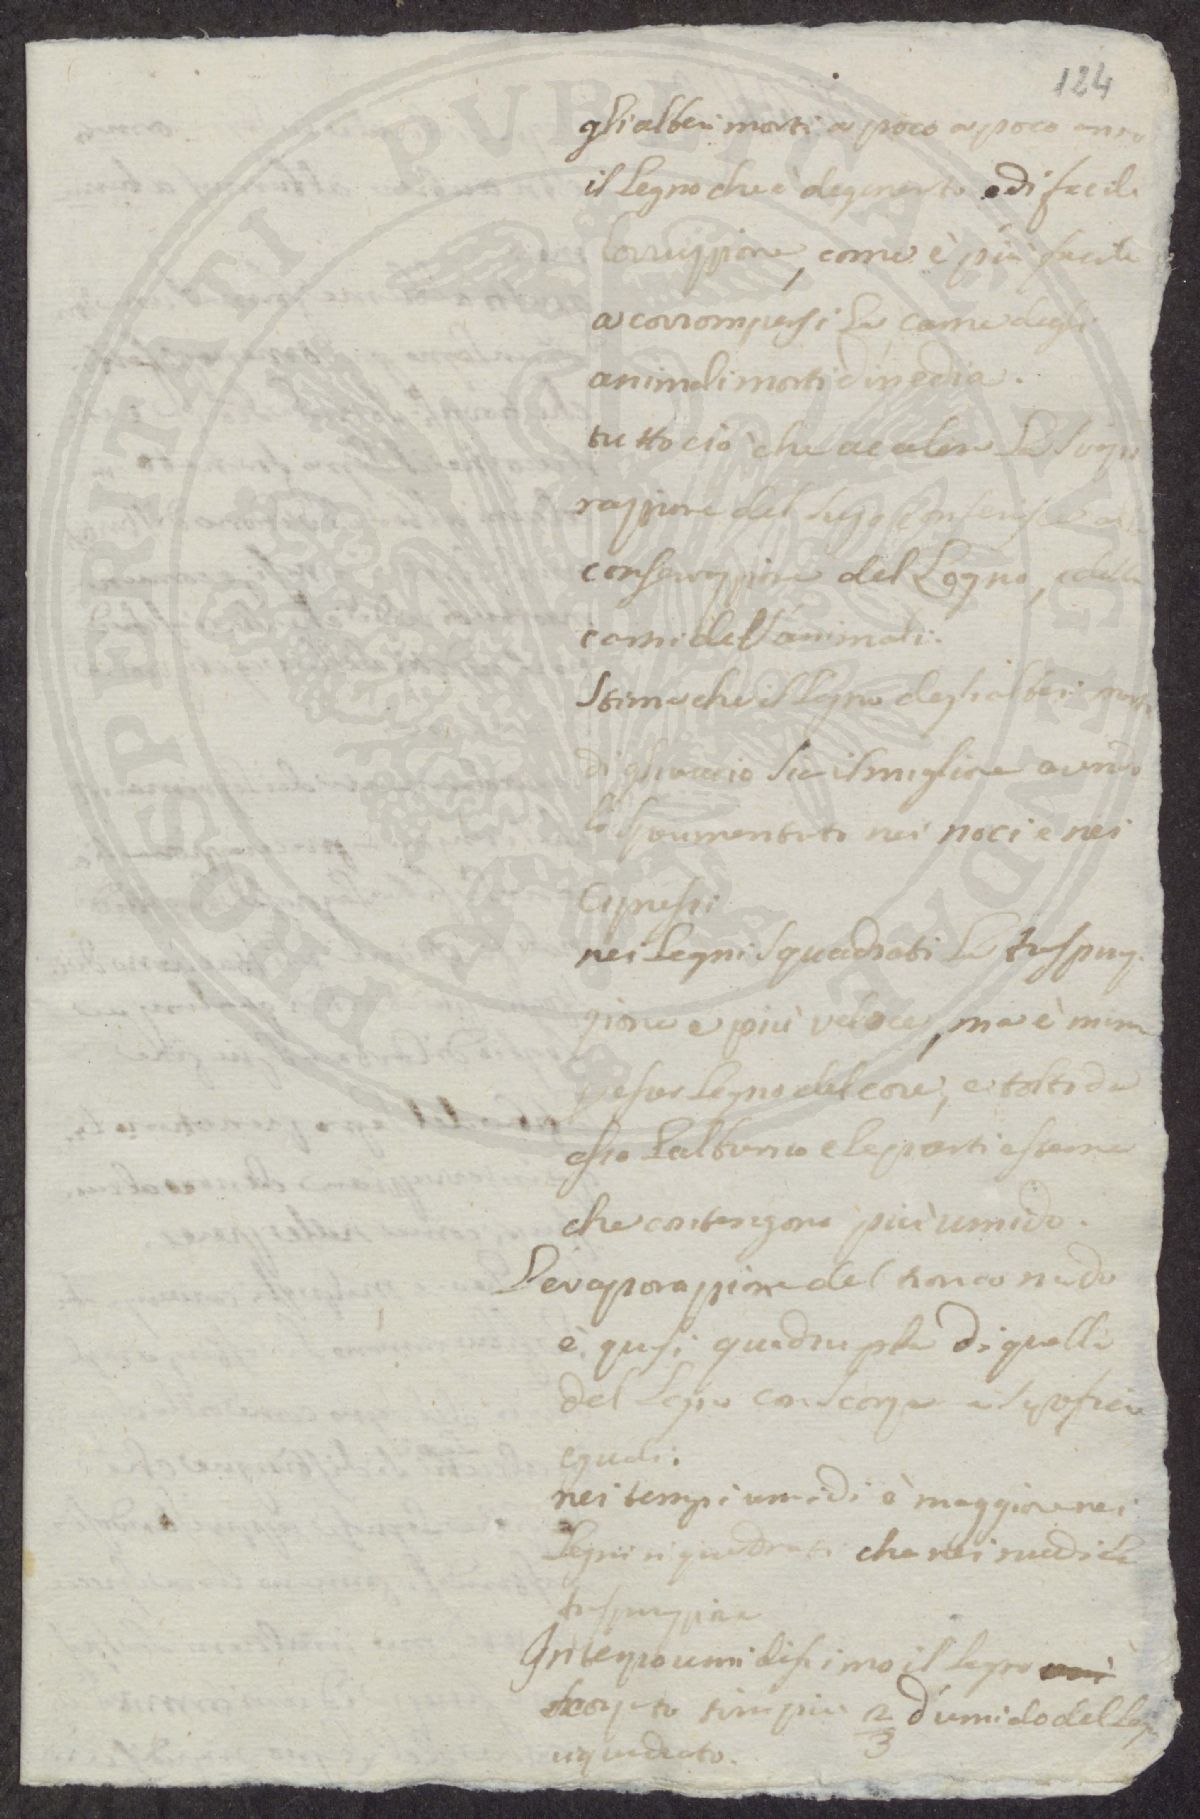 124
gli alberi morti a poco a poco anno
il Legno che è degenerato e di facile
corruzzione, come è più facile
a corrompersi la carne degli
animali morti d'inedia.
tutto ciò che accelera la svapo
razzione del sugo conferisce alla
conservazzione del Legno, e delle
carni dell'animali.
Stima che il legno degli alberi morti
di ghiaccio sia il migliore avendo
lo sperimentato nei noci e nei
Cipressi
nei Legni squadrati la traspira
zione e più veloce, ma è meno
Legno del core, e toltida
esso l'alburno e le parti esterne
che contengono più umido.
L'evaporazzione del tronco nudo
è quasi quadrupla di quella
del Legno con scorza a superficie
eguali.
nei tempi umidi è maggiore nei
Legni squadrati che nei rudi la
traspirazzione
In tempo umidissimo il legno
scorzato tira più 2/3 d'umido del Legno
squadrato.
PROSPERITATI PVBLICAE AVGENDAE